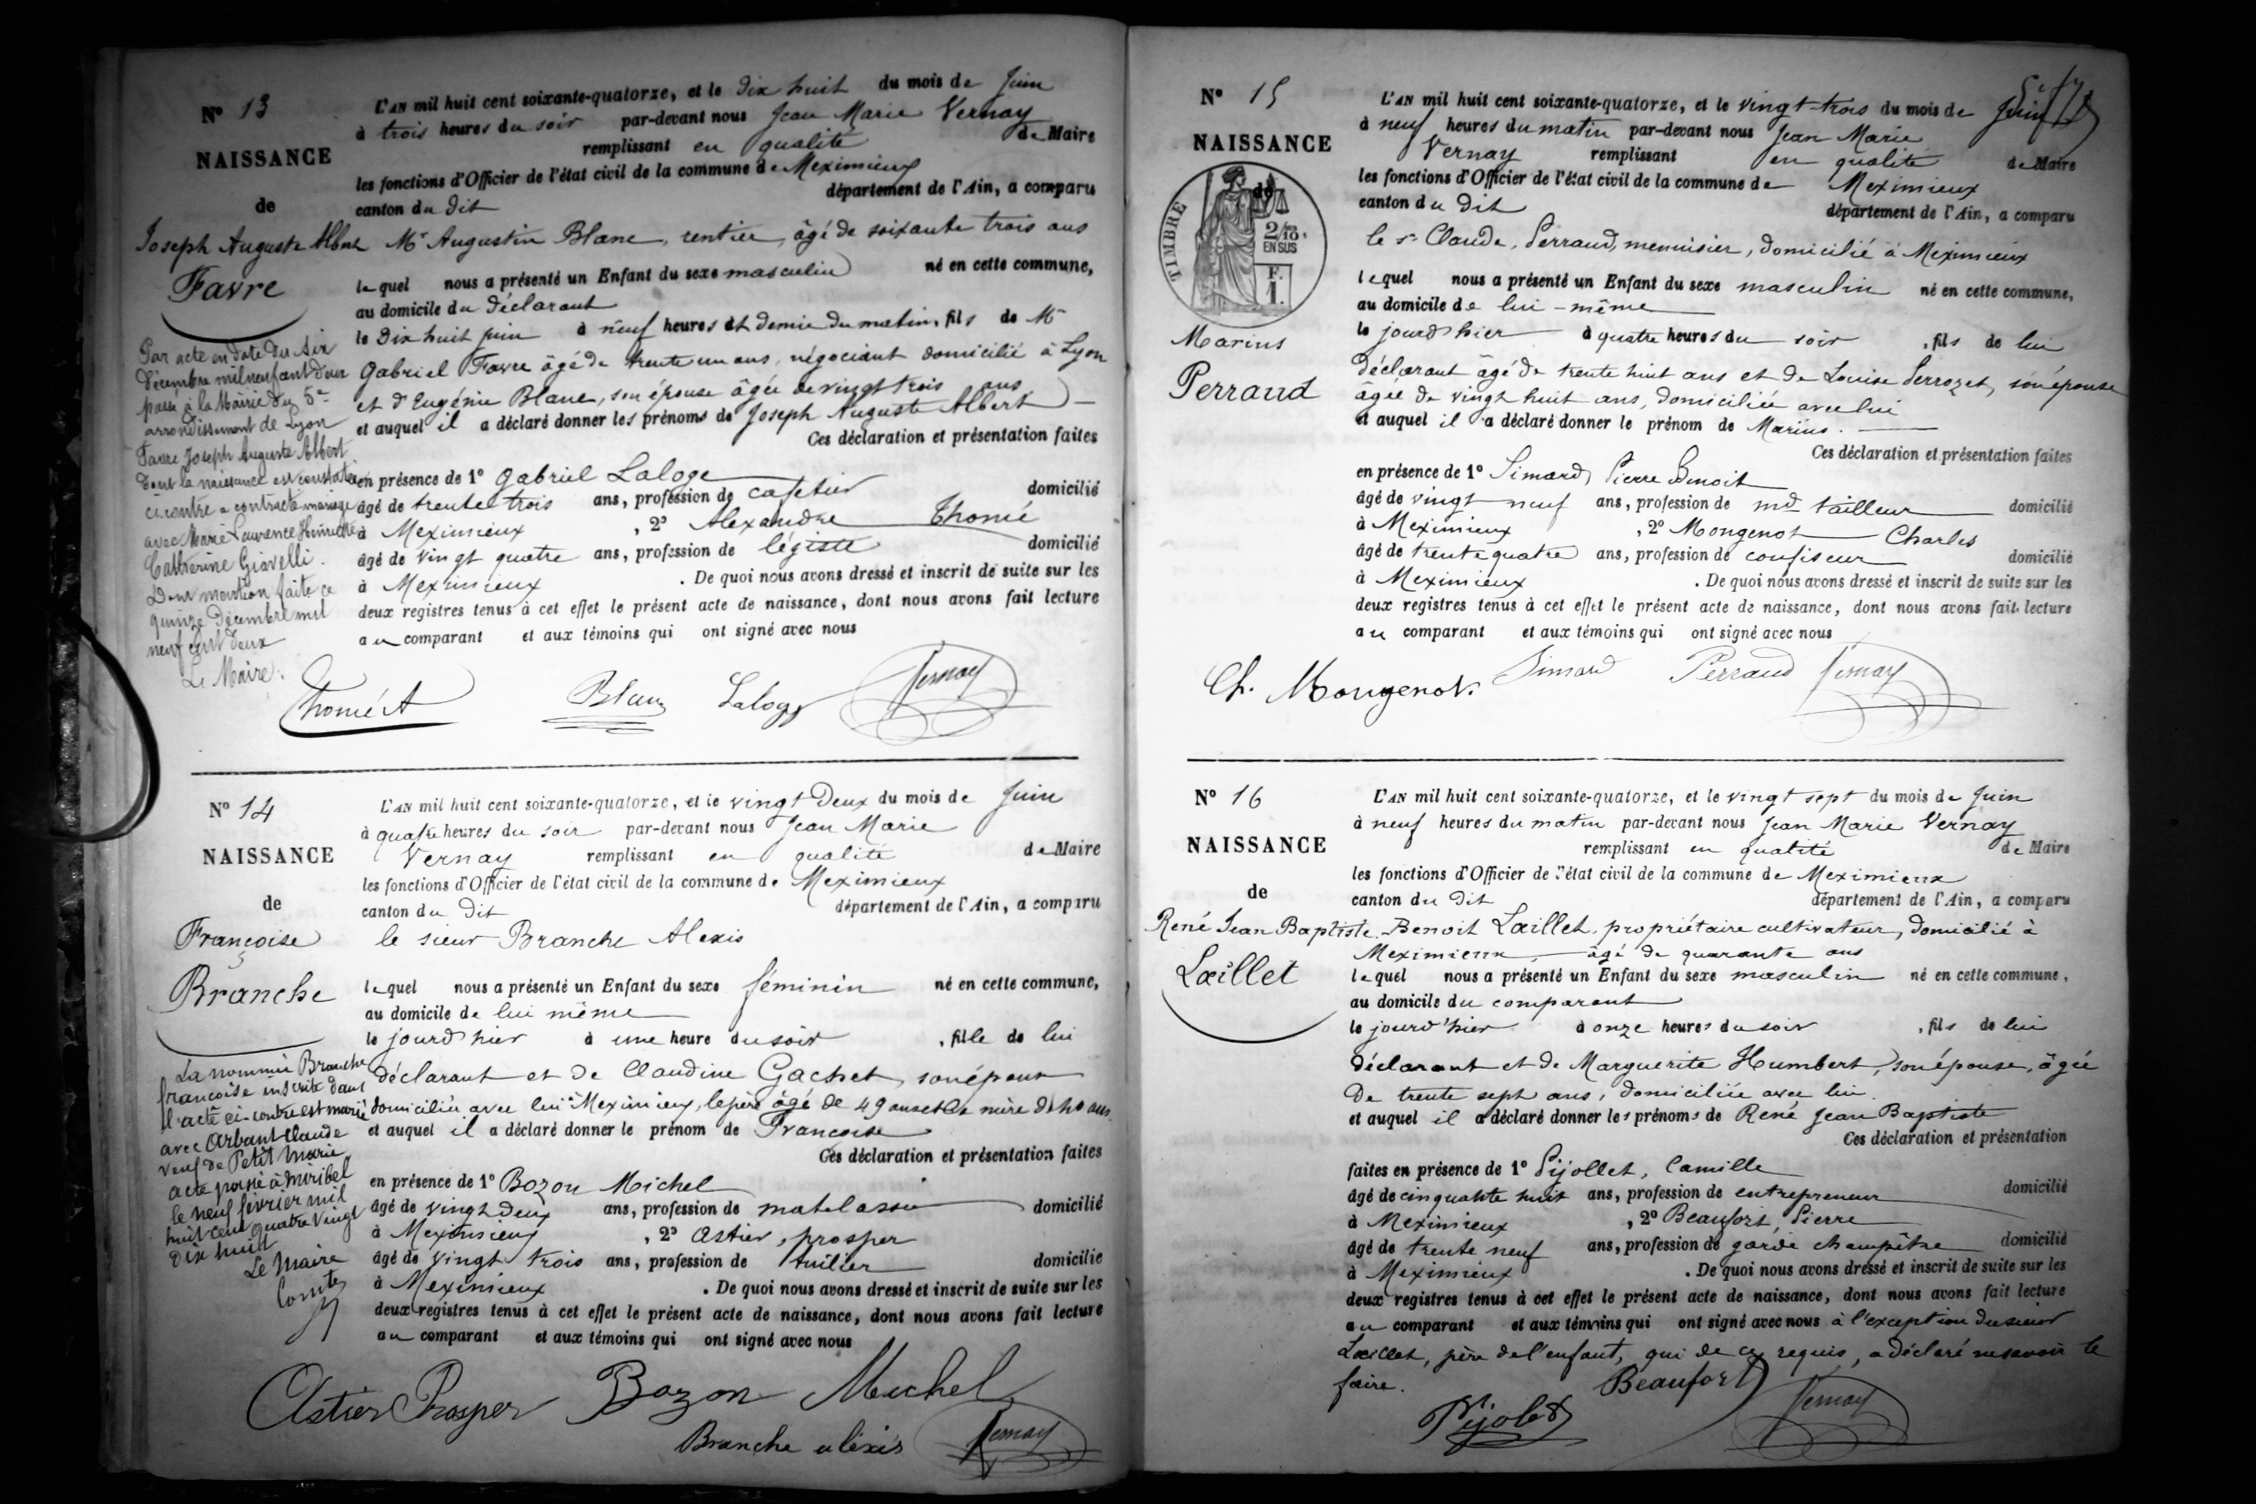 N° 13
NAISSANCE
de
Joseph Auguste Albert
Favre
Par acte en date du six
décembre mil neuf cent deux
passé à la Mairie du 5e
arrondissement de Lyon
Favre Joseph Auguste Albert
dont la naissance est constatée
ci contre a contracté mariage
avec Marie Laurence
Catherine Giavelli.
Dont mention faite ce
quinze Décembre mil
neuf cent deux
Le Maire.
L'AN mil huit cent soixante-quatorze, et le dix huit du mois de Juin
à trois heures du soir par-devant nous Jean Marie Vernay
remplissant en qualité de Maire
les fonctions d'Officier de l'état civil de la commune de Meximieux
canton du dit département de l'Ain, a comparu
Mr Augustin Blanc, rentier, âgé de soixante trois ans
lequel nous a présenté un Enfant du sexe masculin né en cette commune,
au domicile du déclarant
le dix huit juin à neuf heures et demie du matin, fils de Mr
Gabriel Favre âgé de trente un ans, négociant domicilié à Lyon
et d'Eugénie Blanc, son épouse âgée de vingt trois ans
et auquel il a déclaré donner les prénoms de Joseph Auguste Albert
Ces déclaration et présentation faites
en présence de 1° Gabriel Laloge
âgé de trente trois ans, profession de cafetier domicilié
à Meximieux , 2° Alexandre Thomé
âgé de vingt quatre ans, profession de légiste domicilié
à Meximieux . De quoi nous avons dressé et inscrit de suite sur les
deux registres tenus à cet effet le présent acte de naissance, dont nous avons fait lecture
au comparant et aux témoins qui ont signé avec nous
Thomé A Blanc Laloge Vernay
N° 14
NAISSANCE
de
Françoise
Branche
La nommée Branche
françoise inscrite dans
l'acte ci-contre est marié
avec Arbant Claude
veuf de Petit Marie
acte passé à Miribel
le neuf février mil
huit cent quatre vingt
dix huit
Le Maire
Comte
L'AN mil huit cent soixante-quatorze, et le vingt deux du mois de Juin
à quatre heures du soir par-devant nous Jean Marie
Vernay remplissant en qualité de Maire
les fonctions d'Officier de l'état civil de la commune de Meximieux
canton du dit département de l'Ain, a comparu
le sieur Branche Alexis
lequel nous a présenté un Enfant du sexe féminin né en cette commune,
au domicile de lui même
le jourd'hier à une heure du soir , fille de lui
déclarant et de Claudine Gachet, son épouse
domiciliée avec lui à Meximieux, le père âgé de 49 ans et la mère de 40 ans
et auquel il a déclaré donner le prénom de Françoise
Ces déclaration et présentation faites
en présence de 1° Bozon Michel
âgé de vingt deux ans, profession de matelassier domicilié
à Meximieux , 2° Astier, prosper
âgé de vingt trois ans, profession de tuilier domicilié
à Meximieux . De quoi nous avons dressé et inscrit de suite sur les
deux registres tenus à cet effet le présent acte de naissance, dont nous avons fait lecture
au comparant et aux témoins qui ont signé avec nous
Astier Prosper Bozon Michel
Branche alexis Vernay
N° 15
NAISSANCE
de
TIMBRE
2/10es
EN SUS
F.
1.
Marius
Perraud
L'AN mil huit cent soixante-quatorze, et le vingt-trois du mois de Juin
à neuf heures du matin par-devant nous Jean Marie
Vernay remplissant en qualité de Maire
les fonctions d'Officier de l'état civil de la commune de Meximieux
canton du dit département de l'Ain, a comparu
le sr Claude, Perraud, menuisier, domicilié à Meximieux
lequel nous a présenté un Enfant du sexe masculin né en cette commune,
au domicile de lui-même
le jourd'hier à quatre heures du soir , fils de lui
déclarant âgé de trente huit ans et de Louise Perrozet, son épouse
âgée de vingt huit ans, domiciliée avec lui
et auquel il a déclaré donner le prénom de Marius.
Ces déclaration et présentation faites
en présence de 1° Simard, Pierre Benoit
âgé de vingt neuf ans, profession de md tailleur domicilié
à Meximieux , 2° Mongenot Charles
âgé de trente quatre ans, profession de confiseur domicilié
à Meximieux . De quoi nous avons dressé et inscrit de suite sur les
deux registres tenus à cet effet le présent acte de naissance, dont nous avons fait lecture
au comparant et aux témoins qui ont signé avec nous
Ch. Mongenot. Simard Perraud Vernay
N° 16
NAISSANCE
de
René Jean Baptiste
Laillet
L'AN mil huit cent soixante-quatorze, et le vingt sept du mois de Juin
à neuf heures du matin par-devant nous Jean Marie Vernay
remplissant en qualité de Maire
les fonctions d'Officier de l'état civil de la commune de Meximieux
canton du dit département de l'Ain, a comparu
Benoit Laillet, propriétaire cultivateur, domicilié à
Meximieux, âgé de quarante ans
lequel nous a présenté un Enfant du sexe masculin né en cette commune,
au domicile du comparant
le jourd'hier à onze heures du soir , fils de lui
déclarant et de Marguerite Humbert, son épouse, âgée
de trente sept ans, domiciliée avec lui
et auquel il a déclaré donner les prénoms de René Jean Baptiste
Ces déclaration et présentation
faites en présence de 1° Pijollet, Camille
âgé de cinquante huit ans, profession de entrepreneur domicilié
à Meximieux , 2° Beaufort, Pierre
âgé de trente neuf ans, profession de garde champêtre domicilié
à Meximieux . De quoi nous avons dressé et inscrit de suite sur les
deux registres tenus à cet effet le présent acte de naissance, dont nous avons fait lecture
au comparant et aux témoins qui ont signé avec nous à l'exception du sieur
Laillet, père de l'enfant, qui de ce requis, a déclaré ne savoir le
faire.
Pijolet Beaufort Vernay